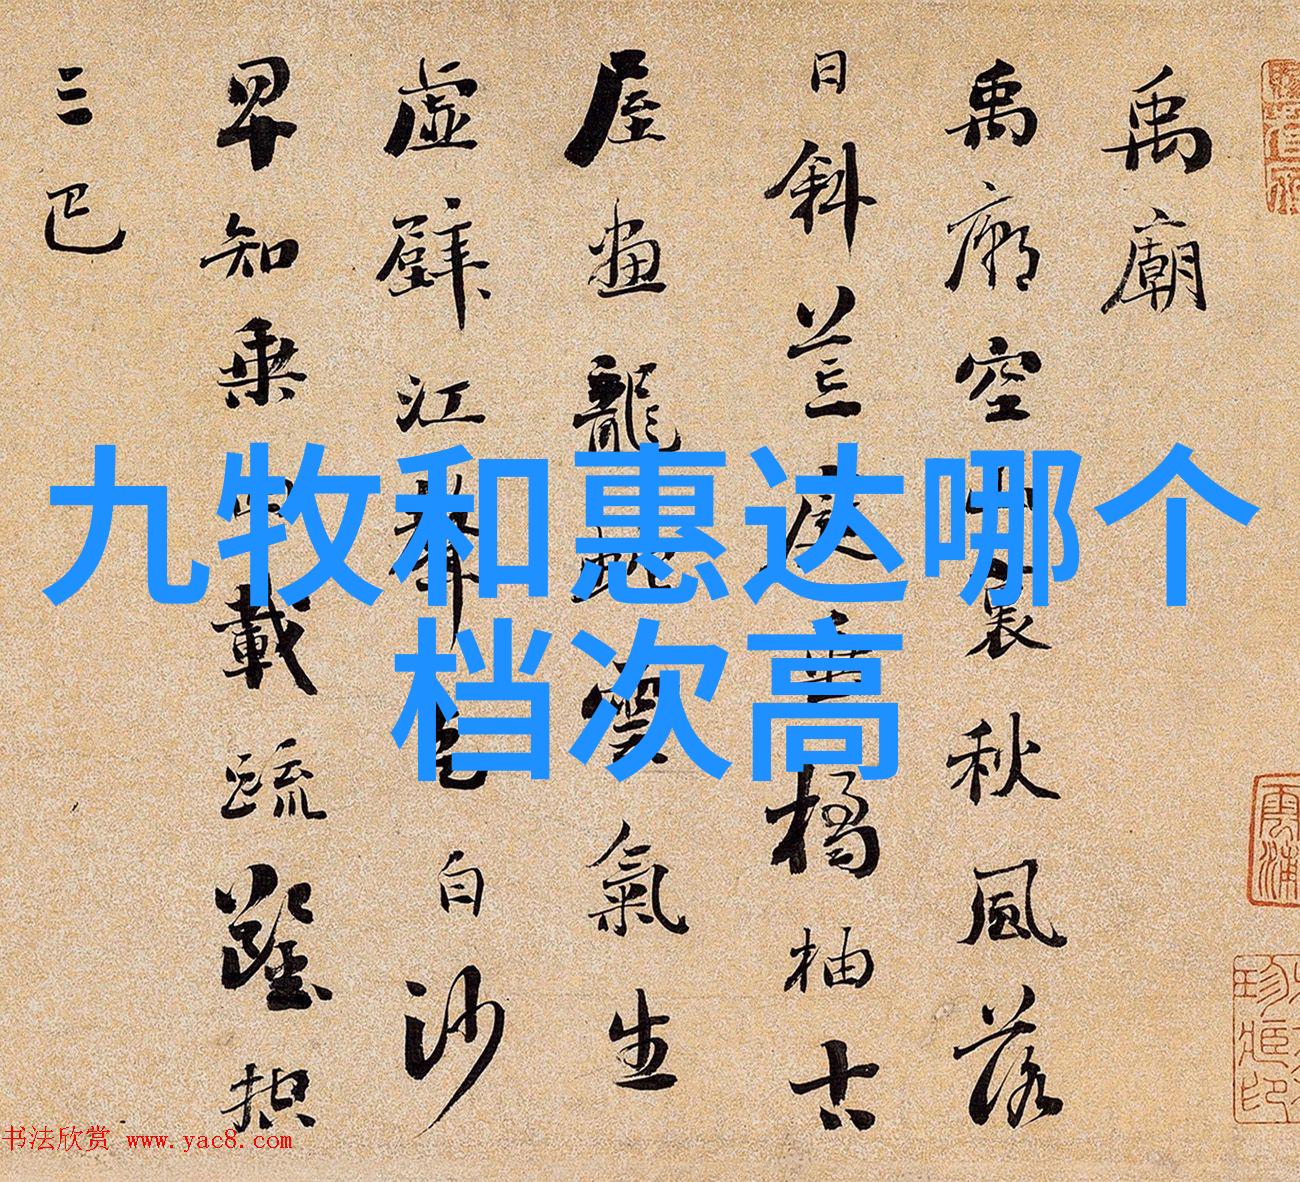 禹廟
禹廟空山裏秋風落
日斜荒庭垂橘柚古
屋畫龍蛇雲氣生
虛壁江聲走白沙
早知乘四載疏鑿控
三巴
九牧和惠达哪个
档次高
书法欣赏 www.yac8.com